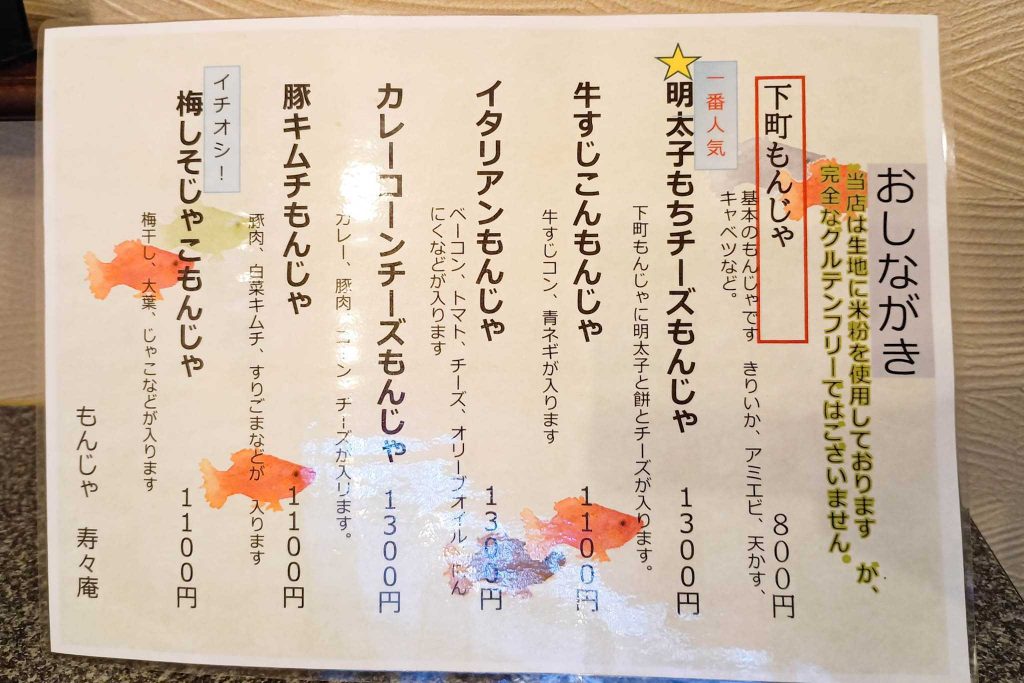 おしながき
当店は生地に米粉を使用しておりますが、
完全なグルテンフリーではございません。
下町もんじゃ 800円
基本のもんじゃです きりいか、アミエビ、天かす、
キャベツなど。
一番人気
明太子もちチーズもんじゃ 1300円
下町もんじゃに明太子と餅とチーズが入ります。
牛すじこんもんじゃ 1100円
牛すじコン、青ネギが入ります
イタリアンもんじゃ 1300円
ベーコン、トマト、チーズ、オリーブオイル にん
にくなどが入ります
カレーコーンチーズもんじゃ 1300円
カレー、豚肉、コーン、チーズが入ります。
豚キムチもんじゃ 1100円
豚肉、白菜キムチ、すりごまなどが 入ります
イチオシ!
梅しそじゃこもんじゃ 1100円
梅干し、大葉、じゃこなどが入ります
もんじゃ 寿々庵